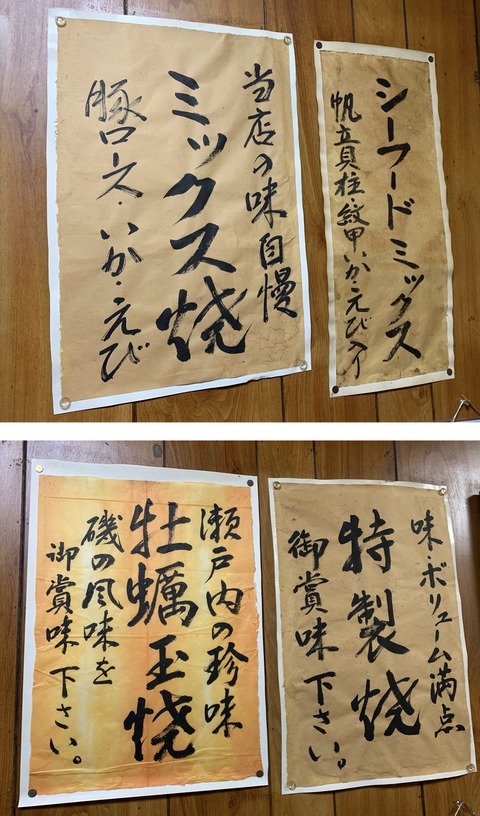 当店の味自慢
ミックス焼
豚ロース・いか・えび
シーフードミックス
帆立貝柱・紋甲いか・えび入り
瀬戸内の珍味
牡蠣玉焼
磯の風味を
御賞味下さい。
味・ボリューム満点
特製焼
御賞味下さい。